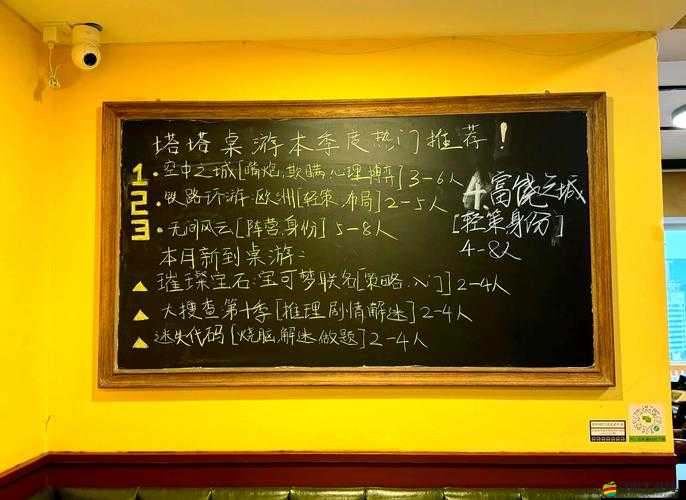 塔塔桌游本季度热门推荐！
1.空中之城[嘴炮.欺瞒.心理博弈]3-6人
2.铁路环游:欧洲[轻策.布局]2-5人
3.无间风云[阵营,身份]5-8人
4.富饶之城
[轻策身份]
4-8人
本月新到桌游:
▲璀璨宝石:宝可梦联名[策略.入门]2-4人
▲大搜查第十季[推理剧情解迷]2-4人
▲迷失代码[烧脑,解迷.做题]2-4人